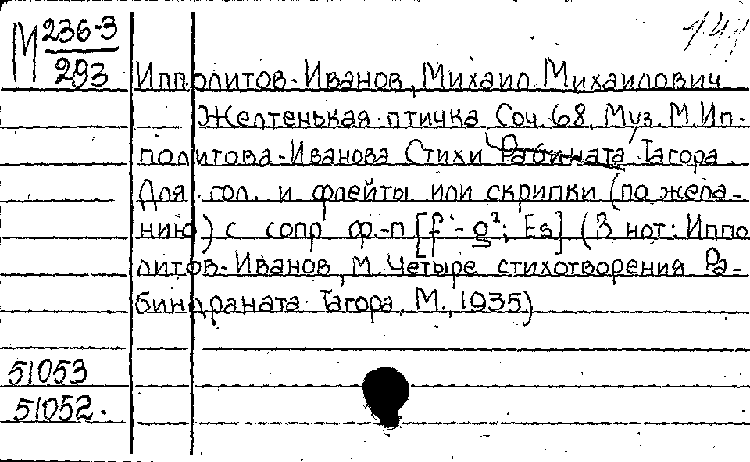 М 236-3
293
141
Ипполитов-Иванов, Михаил Михайлович
Желтенькая птичка Соч. 68. Муз. М. Ип-
политова-Иванова Стихи Рабината Тагора
Для гол. и флейты или скрипки (по жела-
нию) с сопр ф.-п [f¹-g²; Es] (В нот: Иппо
литов-Иванов, М. Четыре стихотворения Ра-
биндраната Тагора, М., 1935)
51053
51052.